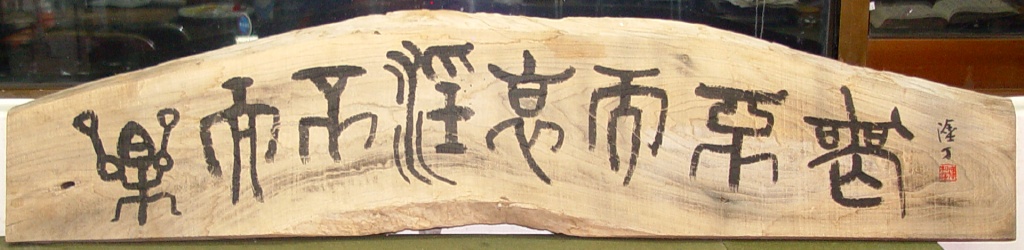 樂而不淫哀而不傷